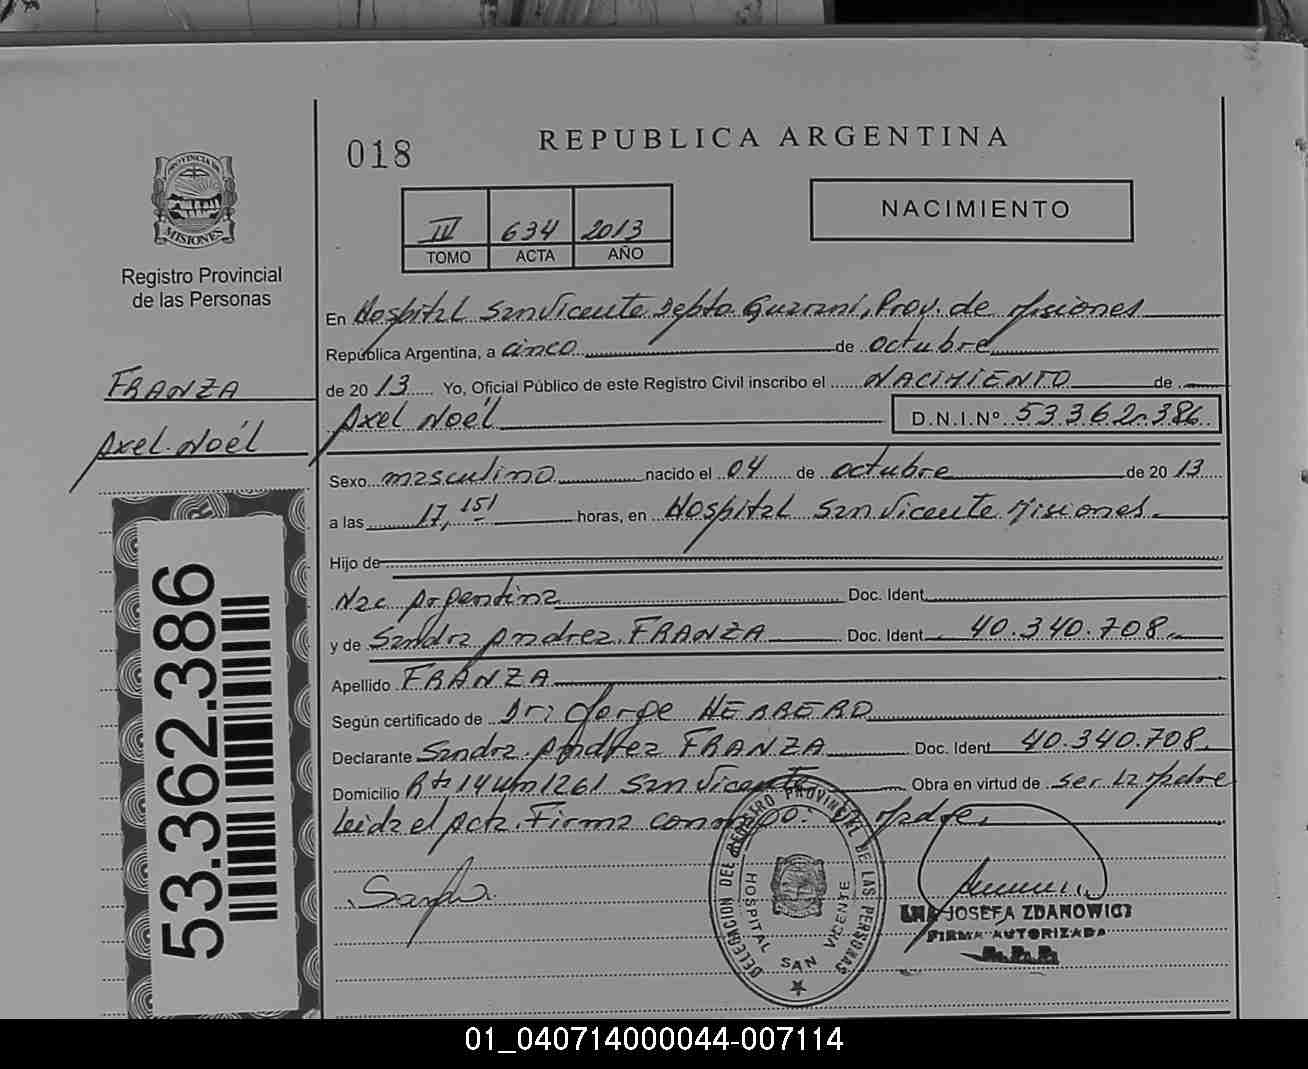 018
REPUBLICA ARGENTINA
PROVINCIA DE
MISIONES
Registro Provincial
de las Personas
IV 634 2013
TOMO ACTA AÑO
NACIMIENTO
En Hospital San Vicente Depto Guaraní, Prov. de Misiones
República Argentina, a cinco de octubre
de 2013 Yo, Oficial Público de este Registro Civil inscribo el NACIMIENTO de
Axel Noél D.N.I.Nº 53362.386
FRANZA
Axel Noél
Sexo masculino nacido el 04 de octubre de 2013
a las 17,15 horas, en Hospital San Vicente Misiones.
Hijo de
Nac Argentina Doc. Ident.
y de Sandra Andrea FRANZA Doc. Ident. 40.340.708
Apellido FRANZA
Según certificado de Dr: Jorge HERRERO
Declarante Sandra Andrea FRANZA Doc. Ident. 40.340.708
Domicilio Rta 14 Km 1261 San Vicente Obra en virtud de ser la Madre
Leida el Acta. Firma conmigo: Madre,
53.362.386
DELEGACION DEL REGISTRO PROVINCIAL DE LAS PERSONAS
HOSPITAL SAN VICENTE
JOSEFA ZDANOWICZ
FIRMA AUTORIZADA
01_040714000044-007114